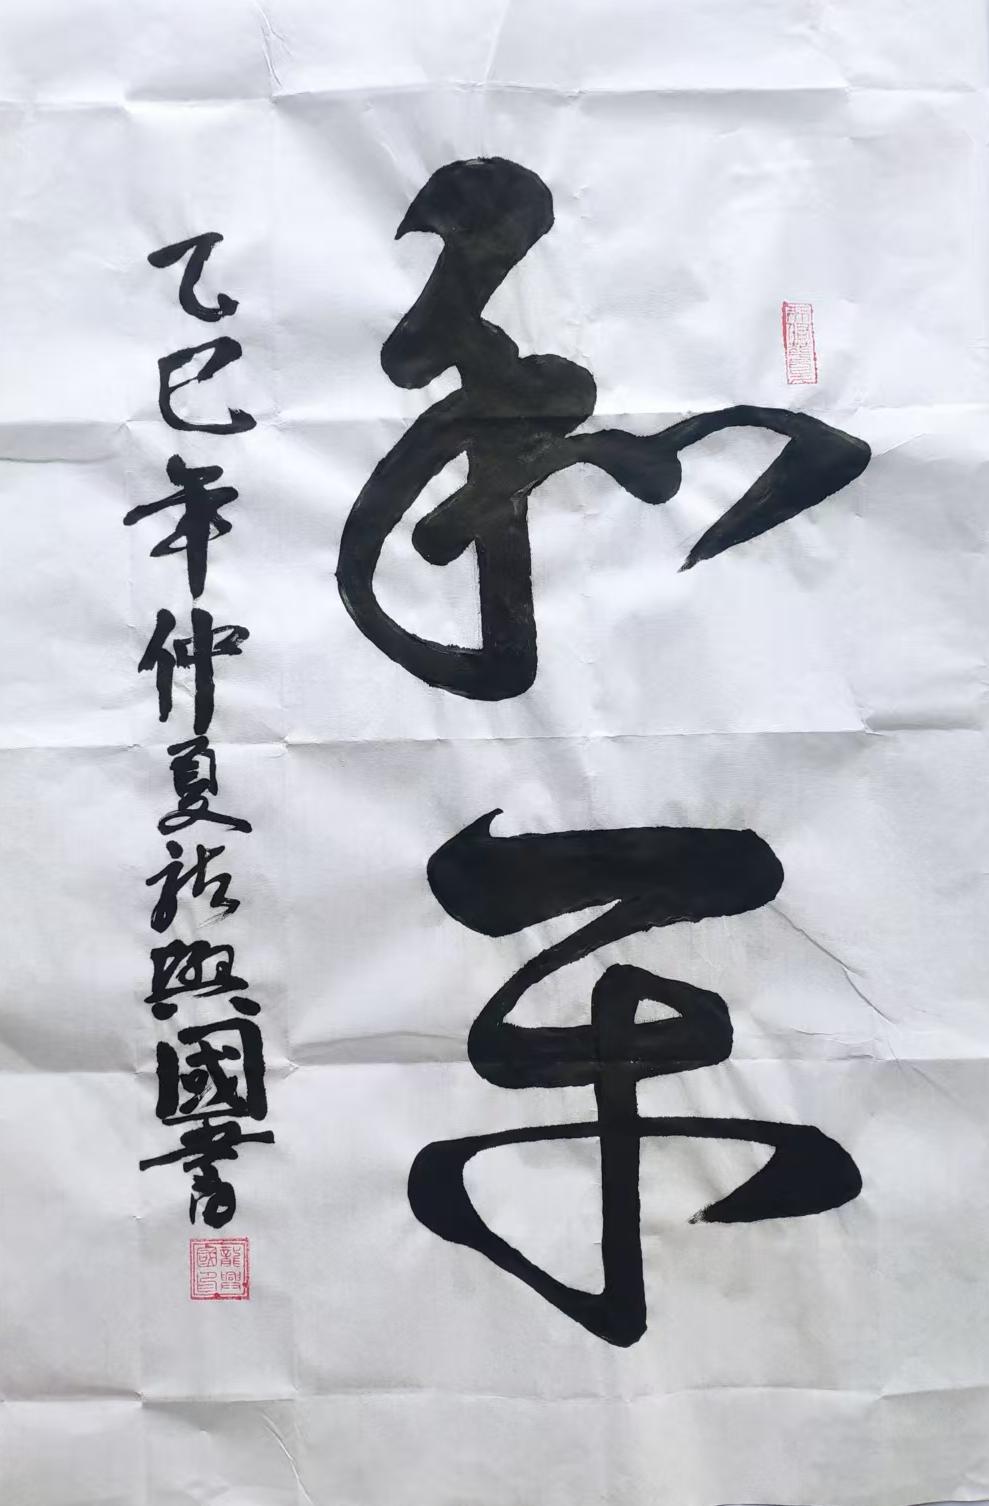 和乐
乙巳年仲夏龍興國書
龍興國印